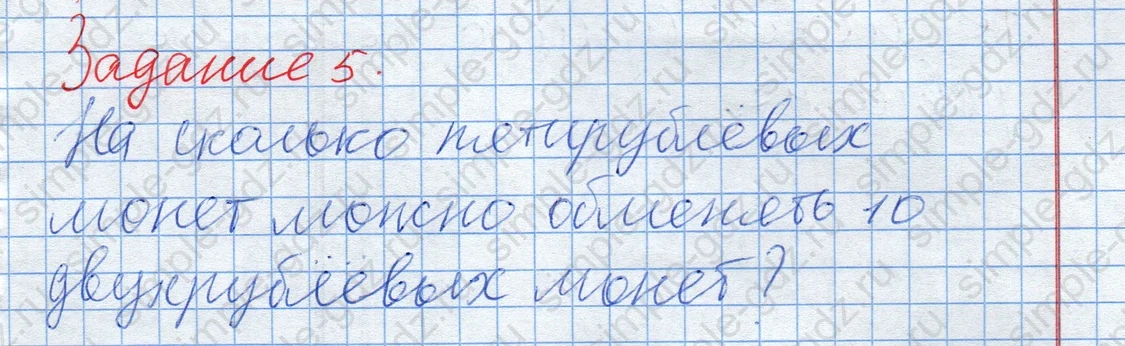 Задание 5.
На сколько пятирублёвых
монет можно обменять 10
двухрублёвых монет?
simple-gdz.ru